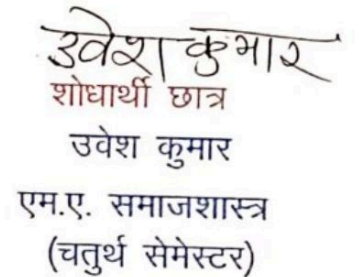 उवेश कुमार
शोधार्थी छात्र
उवेश कुमार
एम.ए. समाजशास्त्र
(चतुर्थ सेमेस्टर)